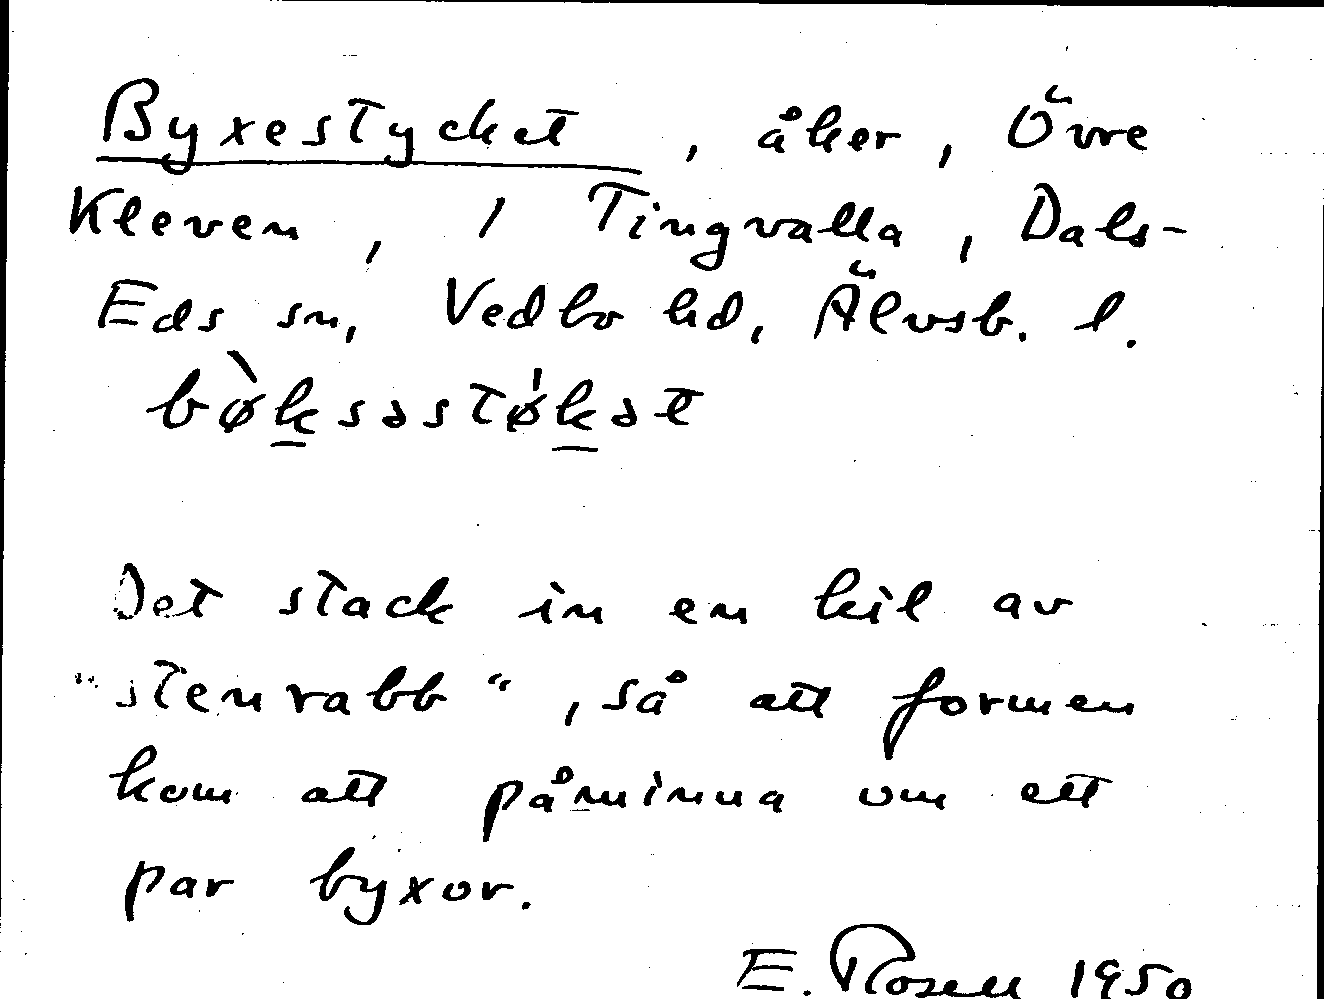 Byxestycket, åker, Övre
Kleven, 1 Tingvalla, Dals-
Eds sn, Vedbo hd, Älvsb. l.
bø̀ksəstø̍kət
Det stack in en kil av
"stenrabb", så att formen
kom att påminna om ett
par byxor.
E. Rosell 1950